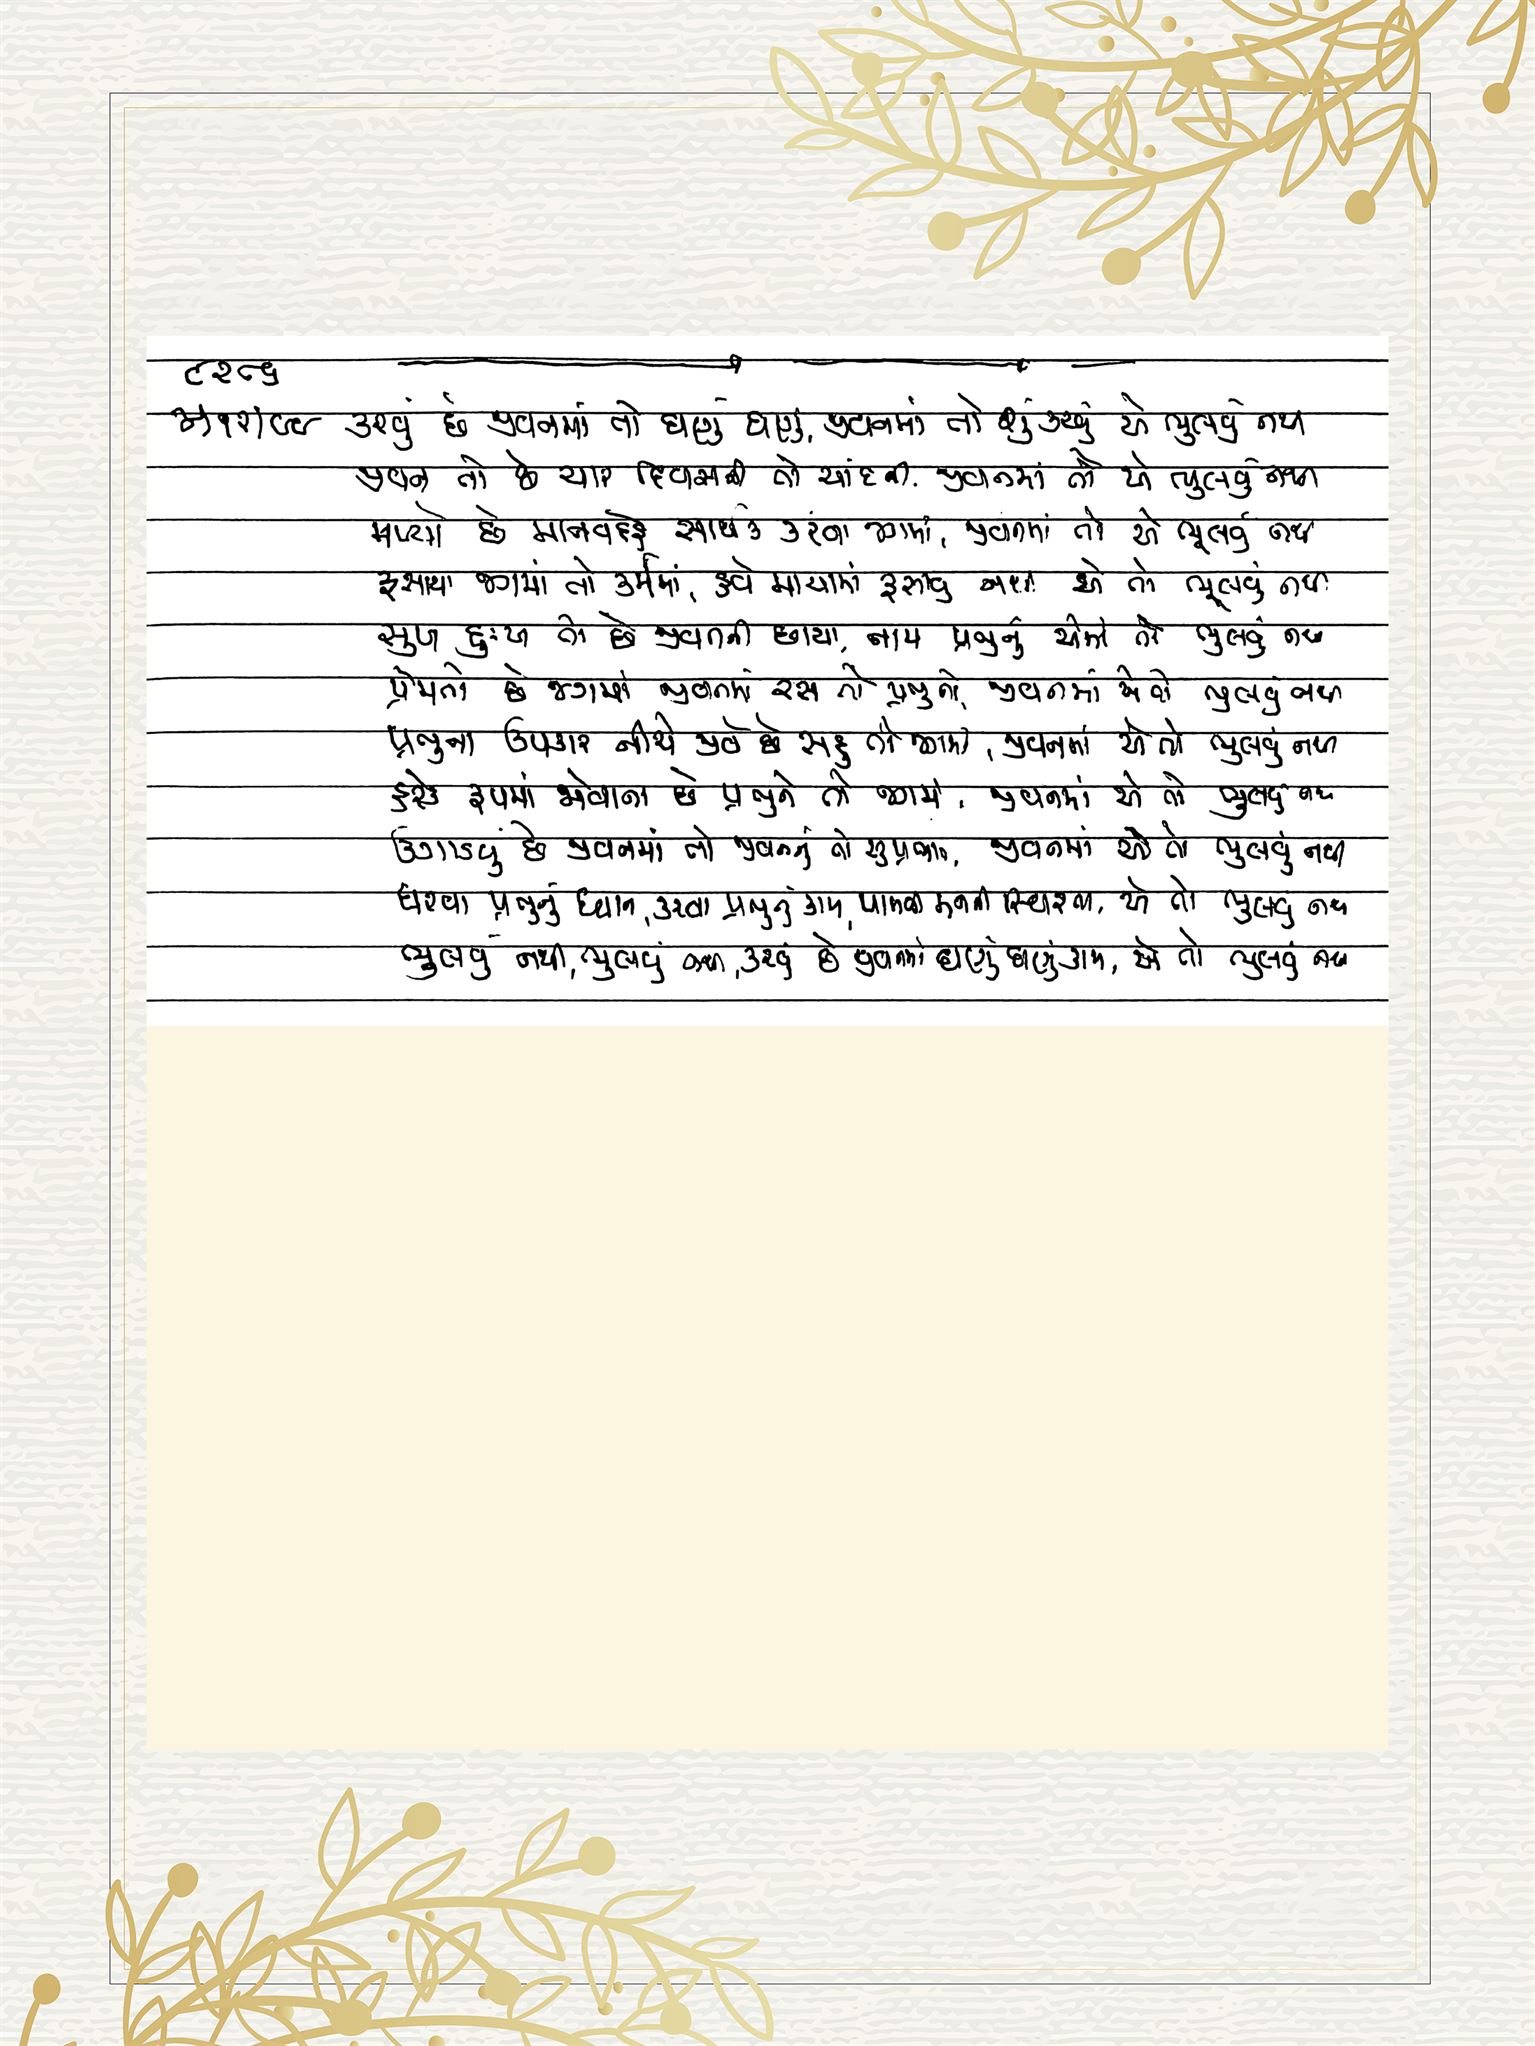 ૮૨૮૬
કરવું છે જીવનમાં તો ઘણું ઘણું, જીવનમાં તો શું કરવું એ ભુલવું નથી
જીવન તો છે ચાર દિવસની તો ચાંદની. જીવનમાં તો એ ભુલવું નથી
મળ્યો છે માનવદેહ સાર્થક કરવા જગમાં, જીવનમાં તો એ ભૂલવું નથી
ફસાયા જગમાં તો કર્મમાં, હવે માયામાં ફસાવુ નથી એ તો ભૂલવું નથી
સુખ દુઃખ તો છે જીવનની છાયા, નામ પ્રભુનું એમાં તો ભુલવું નથી
પ્રેમતો છે જગમાં જીવનમાં રસ તો પ્રભુનો, જીવનમાં એ તો ભુલવું નથી
પ્રભુના ઉપકાર નીચે જીવે છે સહુ તો જગમાં, જીવનમાં એ તો ભુલવું નથી
હરેક રૂપમાં જોવાના છે પ્રભુને તો જગમાં. જીવનમાં એ તો ભુલવું નથી
ઉગાડવું છે જીવનમાં તો જીવનનું તો સુપ્રભાત, જીવનમાં એ તો ભુલવું નથી
ધરવા પ્રભુનું ધ્યાન, કરવા પ્રભુનું કામ, પામવી મનની સ્થિરતા, એ તો ભુલવું નથી
ભુલવું નથી, ભુલવું નથી, કરવું છે જીવનમાં ઘણું ઘણું કામ, એ તો ભુલવું નથી